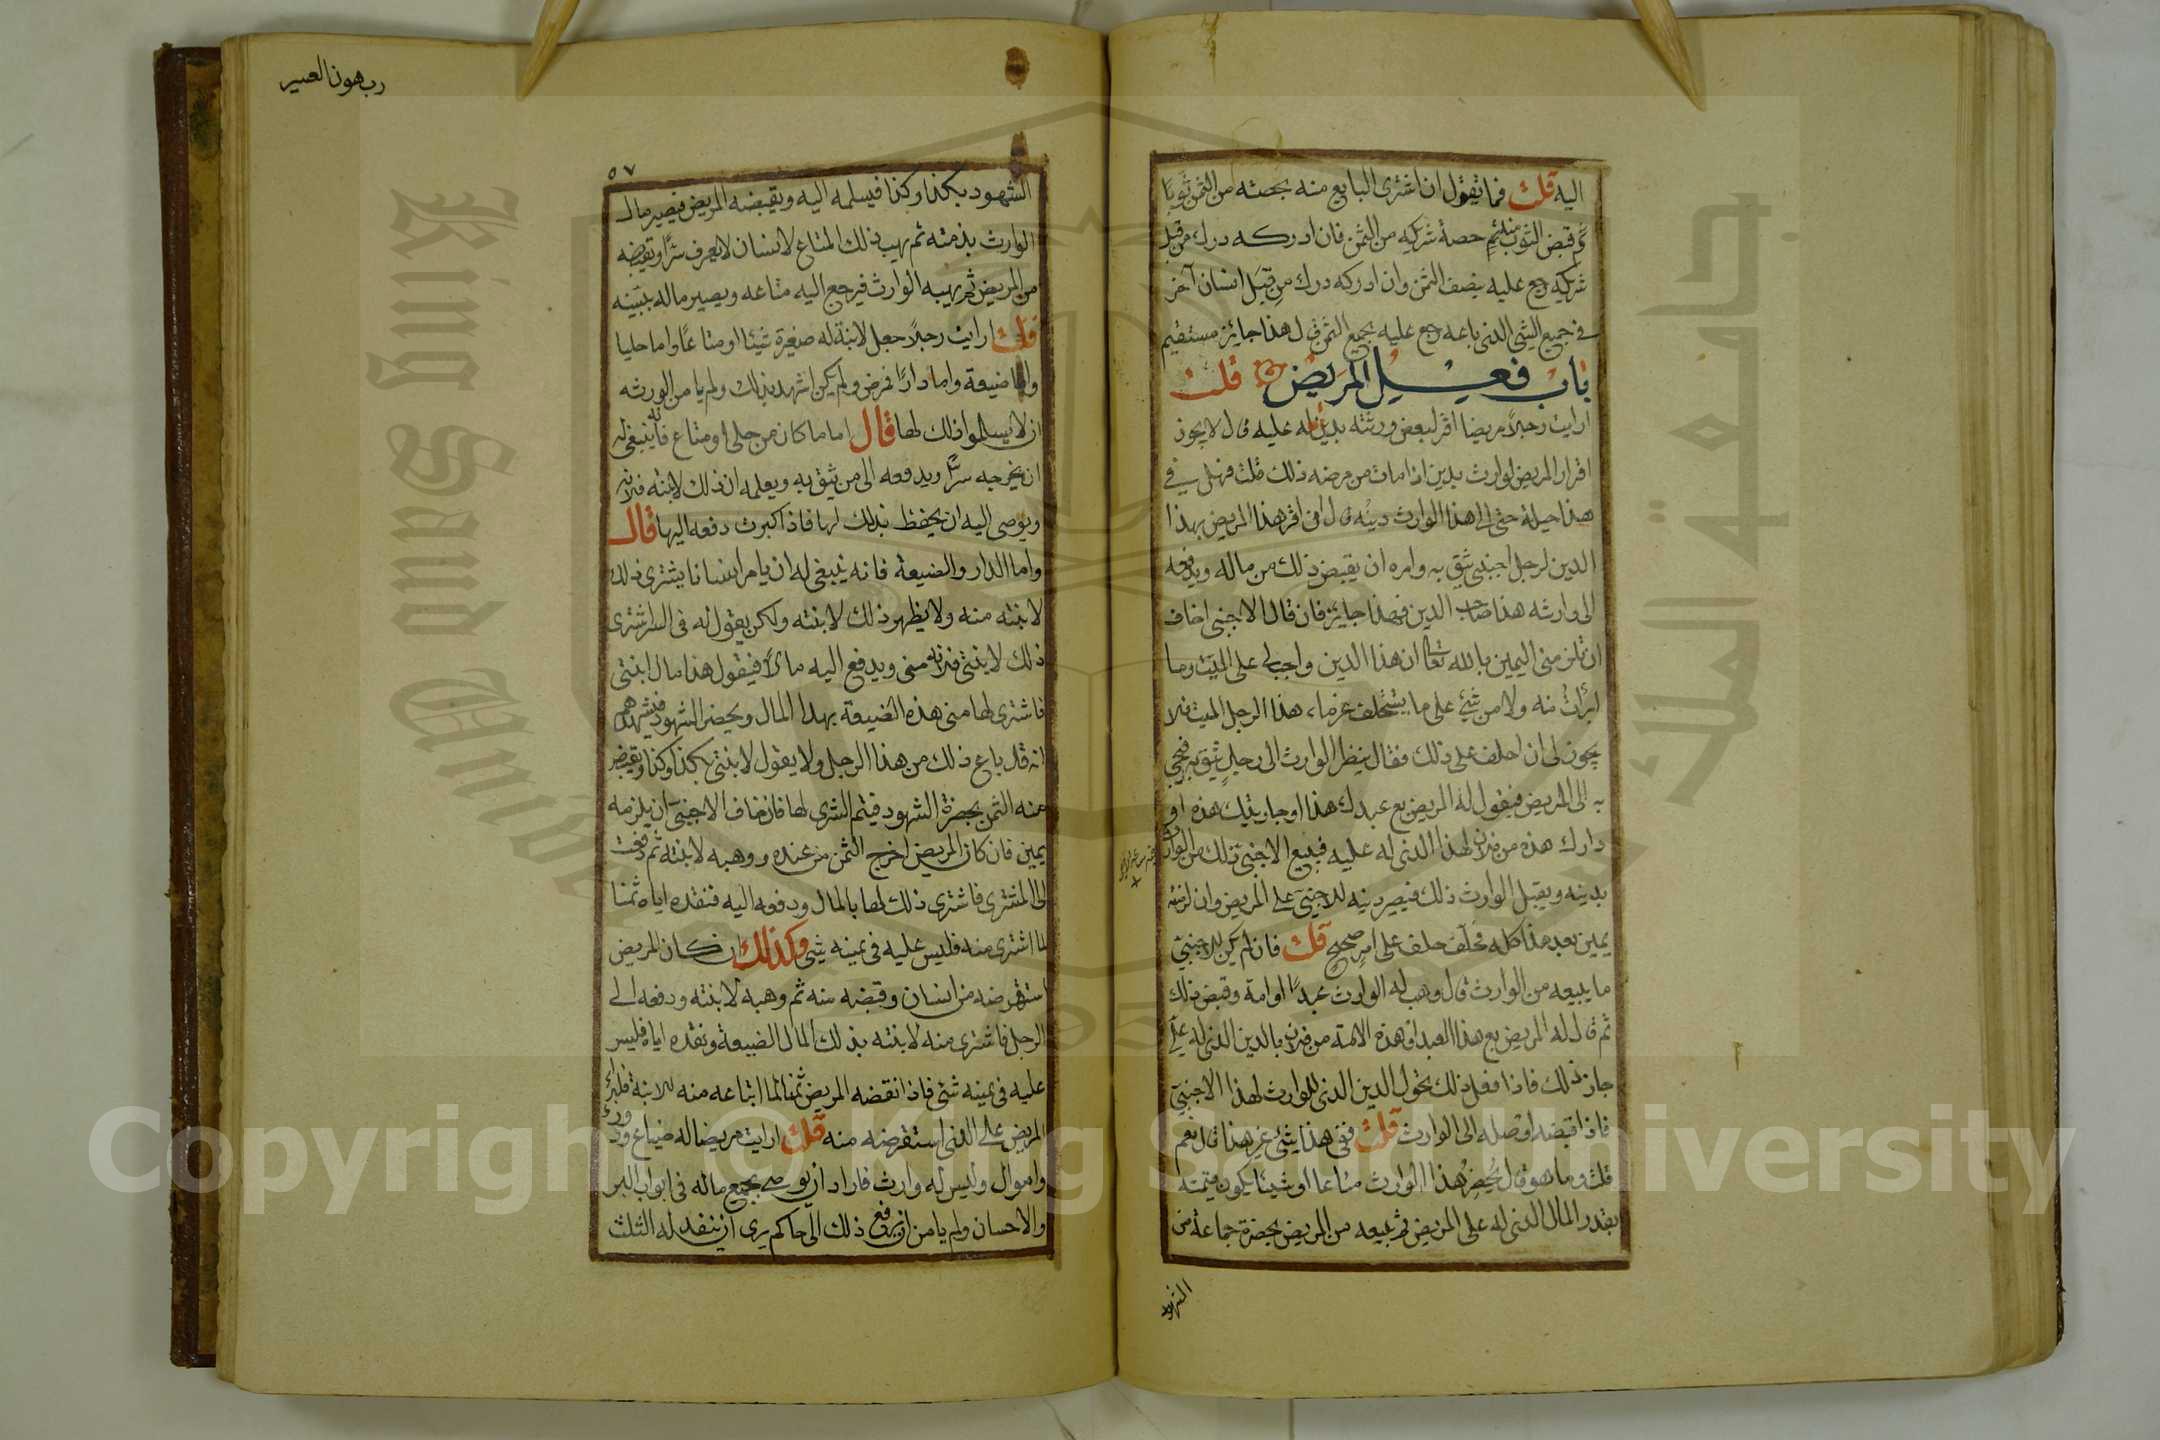 اليه قلت فما تقول ان اشترى البايع منه بحصته من الثمن ثوبا
ثم قبض الثوب منه ثم حصة شركيه من الثمن فان ادركه درك من قبل
شركيه رجع عليه بنصف الثمن وان ادركه درك من قبل انسان آخر
في جميع الشي الذى باعه رجع عليه بجميع الثمن قال هذا جايز مستقيم
باب فعيل المريض قلت
ارايت رجلاً مريضا اقر لبعض ورثته بدين له عليه قال لا يجوز
اقرار المريض لوارث بدين اذا مات من مرضه ذلك قلت فهل في
هذا حيلة حتى الى هذا الوارث دينه قال ان اقر هذا المريض بهذا
الدين لرجل اجنبى يثق به وامره ان يقبض ذلك من ماله ويدفعه
الى وارثه هذا صاحب الدين فهذا جايز فان قال الاجنبى اخاف
ان تلزمنى اليمين بالله تعالى ان هذا الدين واجب لى على الميت وما
ابرأت منه ولا من شئ على ما يستحلف غرماء هذا الرجل الميت فلا
يجوز لى ان احلف على ذلك فقال ينظر الوارث الى رجل يثق به فيجئ
به الى المريض فيقول له المريض بع عبدك هذا او جاريتك هذه او
دارك هذه من فلان لهذا الذى له عليه فيبيع الاجنبى ذلك من الوارث
بدينه ويقبل الوارث ذلك فيصير دينه للاجنبى على المريض وان لزمته
يمين بعد هذا كله فحلف حلف على امر صحيح قلت فان لم يكن للاجنبى
ما يبيعه من الوارث قال وهب له الوارث عبداً او امة وقبض ذلك
ثم قال له المريض بع هذا العبد او هذه الامة من فلان بالدين الذى له على
جاز ذلك فاذا فعل ذلك تحول الدين الذى للوارث لهذا الاجنبى
فاذا قبضه اوصله الى الوارث قلت ففى هذا شئ غير هذا قال نعم
قلت وما هو قال يحضر هذا الوارث متاعا او شيئا يكون قيمته
بقدر المال الذى له على المريض ثم يبيعه من المريض بحضرة جماعة من
الشهود
رب هون العسير
٥٧
الشهود بكذا وكذا فيسلمه اليه ويقبضه المريض فيصير مال
الوارث بذمته ثم يهب ذلك المتاع لانسان لا يعرف سرًا ويقبضه
من المريض ثم يهبه الوارث فيرجع اليه متاعه ويصير ماله ببينه
قلت ارايت رجلاً جعل لابنة له صغيرة شيئا او متاعًا واما حليا
واما ضيعة واما دارًا فمرض ولم يكن اشهد بذلك ولم يامن الورثه
ان لا يسلموا ذلك لها قال اما ما كان من حلى او متاع فانه ينبغى له
ان يخرجه سرًا ويدفعه الى من يثق به ويعلمه ان ذلك لابنته فلانه
ويوصى اليه ان يحفظ بذلك لها فاذا كبرت دفعه اليها قال
واما الدار والضيعة فانه ينبغى له ان يامر انسانا يشترى ذلك
لابنته منه ولا يظهر ذلك لابنته ولكن يقول له فى السر اشترى
ذلك لابنتى فلانه منى ويدفع اليه مالاً فيقول هذا مال ابنتى
فاشترى لها منى هذه الضيعة بهذا المال ويحضر الشهود فيشهدهم
انه قد باع ذلك من هذا الرجل ولا يقول لابنتى بكذا وكذا ويقبض
منه الثمن بحضرة الشهود فيتم الشرى لها فان خاف الاجنبى ان يلزمه
يمين فان كان المريض اخرج الثمن من عنده ووهبه لابنته ثم دفعت
الى المشترى فاشترى ذلك لها بالمال ودفعه اليه فنقده اياه ثمنا
لما اشترى منه فليس عليه فى يمينه شئ وكذلك ان كان المريض
استقرضه من انسان وقبضه منه ثم وهبه لابنته ودفعه الى
الرجل فاشترى منه لابنته بذلك المال الضيعة ونقده اياه فليس
عليه فى يمينه شئ فاذا انقضه المريض ثمنا لما ابتاعه منه للابنة فليرد
المريض على الذى استقرضه منه قلت ارايت مريضا له ضياع ودور
واموال وليس له وارث فاراد ان يوصى بجميع ماله فى ابواب البر
والاحسان ولم يامن ان يرفع ذلك الى حاكم يرى ان ينفد له الثلث
King Saud University
جامعة الملك
1957
Copyright © King Saud University